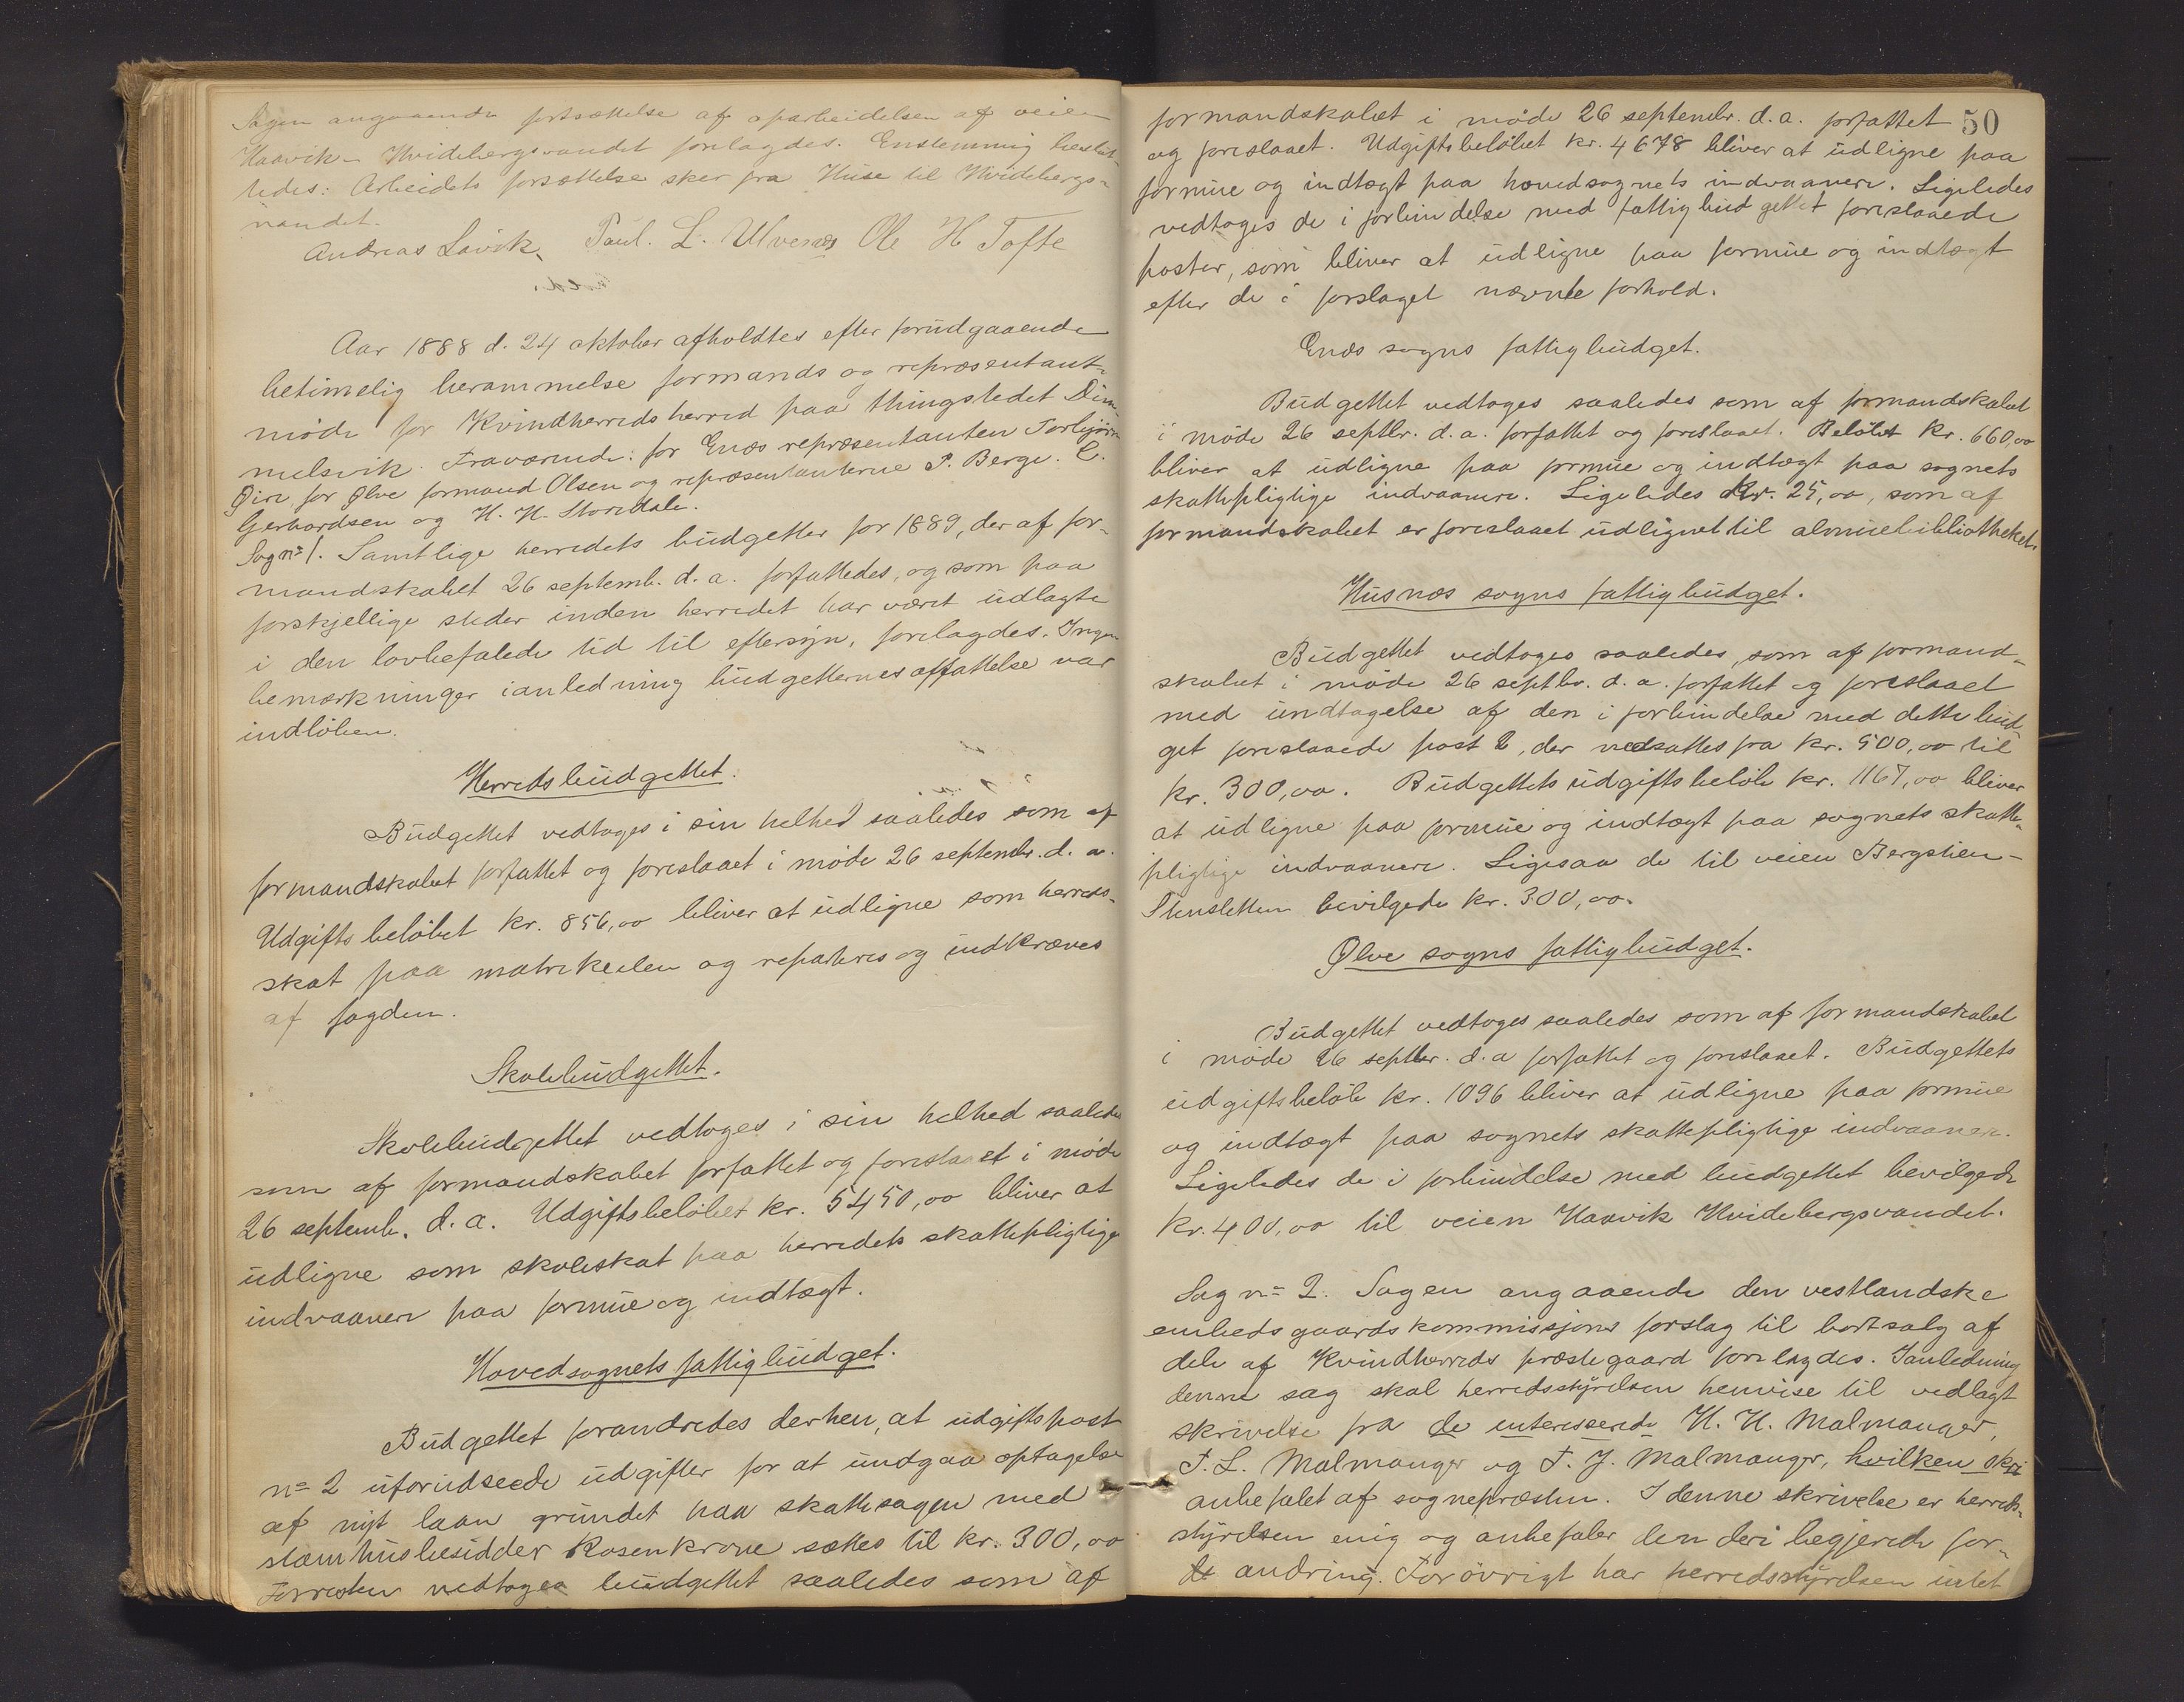 Sagen angaaende fortsættelse af oparbeidelsen af veien
Haavik – Hvidebergsvandet forelagdes. Enstemmig beslut-
tedes: Arbeidets forsættelse sker fra Huse til Hvidebergs-
vandet.
Andreas Lavik. Paul. L. Ulvenes Ole H Tofte
Aar 1888 d. 24 oktober afholdtes efter forudgaaende
betimelig berammelse formands og repræsentant-
møde for Kvindherreds herred paa thingstedet Dim-
melsvik. Fraværende: for Enæs repræsentanten Torbjørn
Øie, for Ølve formand Olsen og repræsentanterne P. Berge. C.
Gerhardsen og H. H. Storedale.
Sag n= 1. Samtlige herredets budgetter for 1889, der af for-
mandskabet 26 septemb. d. a. forfattedes, og som paa
forskjellige steder inden herredet har været udlagte
i den lovbefalede tid til eftersyn, forelagdes. Ingen
bemærkninger ianledning budgetternes affattelse var
indløben.
Herredsbudgettet.
Budgettet vedtoges i sin helhed saaledes som af
formandskabet forfattet og foreslaaet i møde 26 septembr. d. a.
Udgiftsbeløbet kr. 856,00 bliver at udligne som herreds-
skat paa matrikelen og reparteres og indkræves
af fogden.
Skolebudgettet.
Skolebudgettet vedtoges i sin helhed saaledes
som af formandskabet forfattet og foreslaaet i møde
26 septemb. d. a. Udgiftsbeløbet kr. 5450,00 bliver at
udligne som skoleskat paa herredets skattepligtige
indvaanere paa formue og indtægt.
Hovedsognets fattigbudget.
Budgettet forandredes derhen, at udgiftspost
n= 2 uforudseede udgifter for at undgaa optagelse
af nyt laan grundet paa skattesagen med
stamhusbesidder Rosenkrone sættes til kr. 300,00
Forresten vedtoges budgettet saaledes som af
50
formandskabet i møde 26 septembr. d. a. forfattet
og foreslaaet. Udgiftsbeløbet kr. 4678 bliver at udligne paa
formue og indtægt paa hovedsognets indvaanere. Ligeledes
vedtoges de i forbindelse med fattigbudgettet foreslaaede
poster, som bliver at udligne paa formue og indtægt
efter de i forslaget nævnte forhold.
Enæs sogns fattigbudget.
Budgettet vedtoges saaledes som af formandskabet
i møde 26 septbr. d. a. forfattet og foreslaaet. Beløbet kr. 660,00
bliver at udligne paa formue og indtægt paa sognets
skattepligtige indvaanere. Ligeledes kr. 25,00, som af
formandskabet er foreslaaet udlignet til almuebibliotheket.
Husnæs sogns fattigbudget.
Budgettet vedtoges saaledes, som af formand-
skabet i møde 26 septbr. d. a. forfattet og foreslaaet
med undtagelse af den i forbindelse med dette bud-
get foreslaaede post 2, der nedsattes fra kr. 500,00 til
kr. 300,00. Budgettets udgiftsbeløb kr. 1167,00 bliver
at udligne paa formue og indtægt paa sognets skatte-
pligtige indvaanere. Ligesaa de til veien Bergstien –
Stensletten bevilgede kr. 300,00.
Ølve sogns fattigbudget.
Budgettet vedtoges saaledes som af formandskabet
i møde 26 septbr. d. a forfattet og foreslaaet. Budgettets
udgiftsbeløb kr. 1096 bliver at udligne paa formue
og indtægt paa sognets skattepligtige indvaanere.
Ligeledes de i forbindelse med budgettet bevilgede
kr. 400,00 til veien Haavik Hvidebergsvandet.
Sag n= 2. Sagen angaaende den vestlandske
embedsgaardskommissjons forslag til bortsalg af
dele af Kvindherreds præstegaard forelagdes. Ianledning
denne sag skal herredsstyrelsen henvise til vedlagt
skrivelse fra de interesserede H. H. Malmanger,
T. L. Malmanger og T. J. Malmanger, hvilken skri
anbefalet af sognepræsten. I denne skrivelse er herreds-
styrelsen enig og anbefaler den deri begjerede for-
andring. Forøvrigt har herredsstyrelsen intet